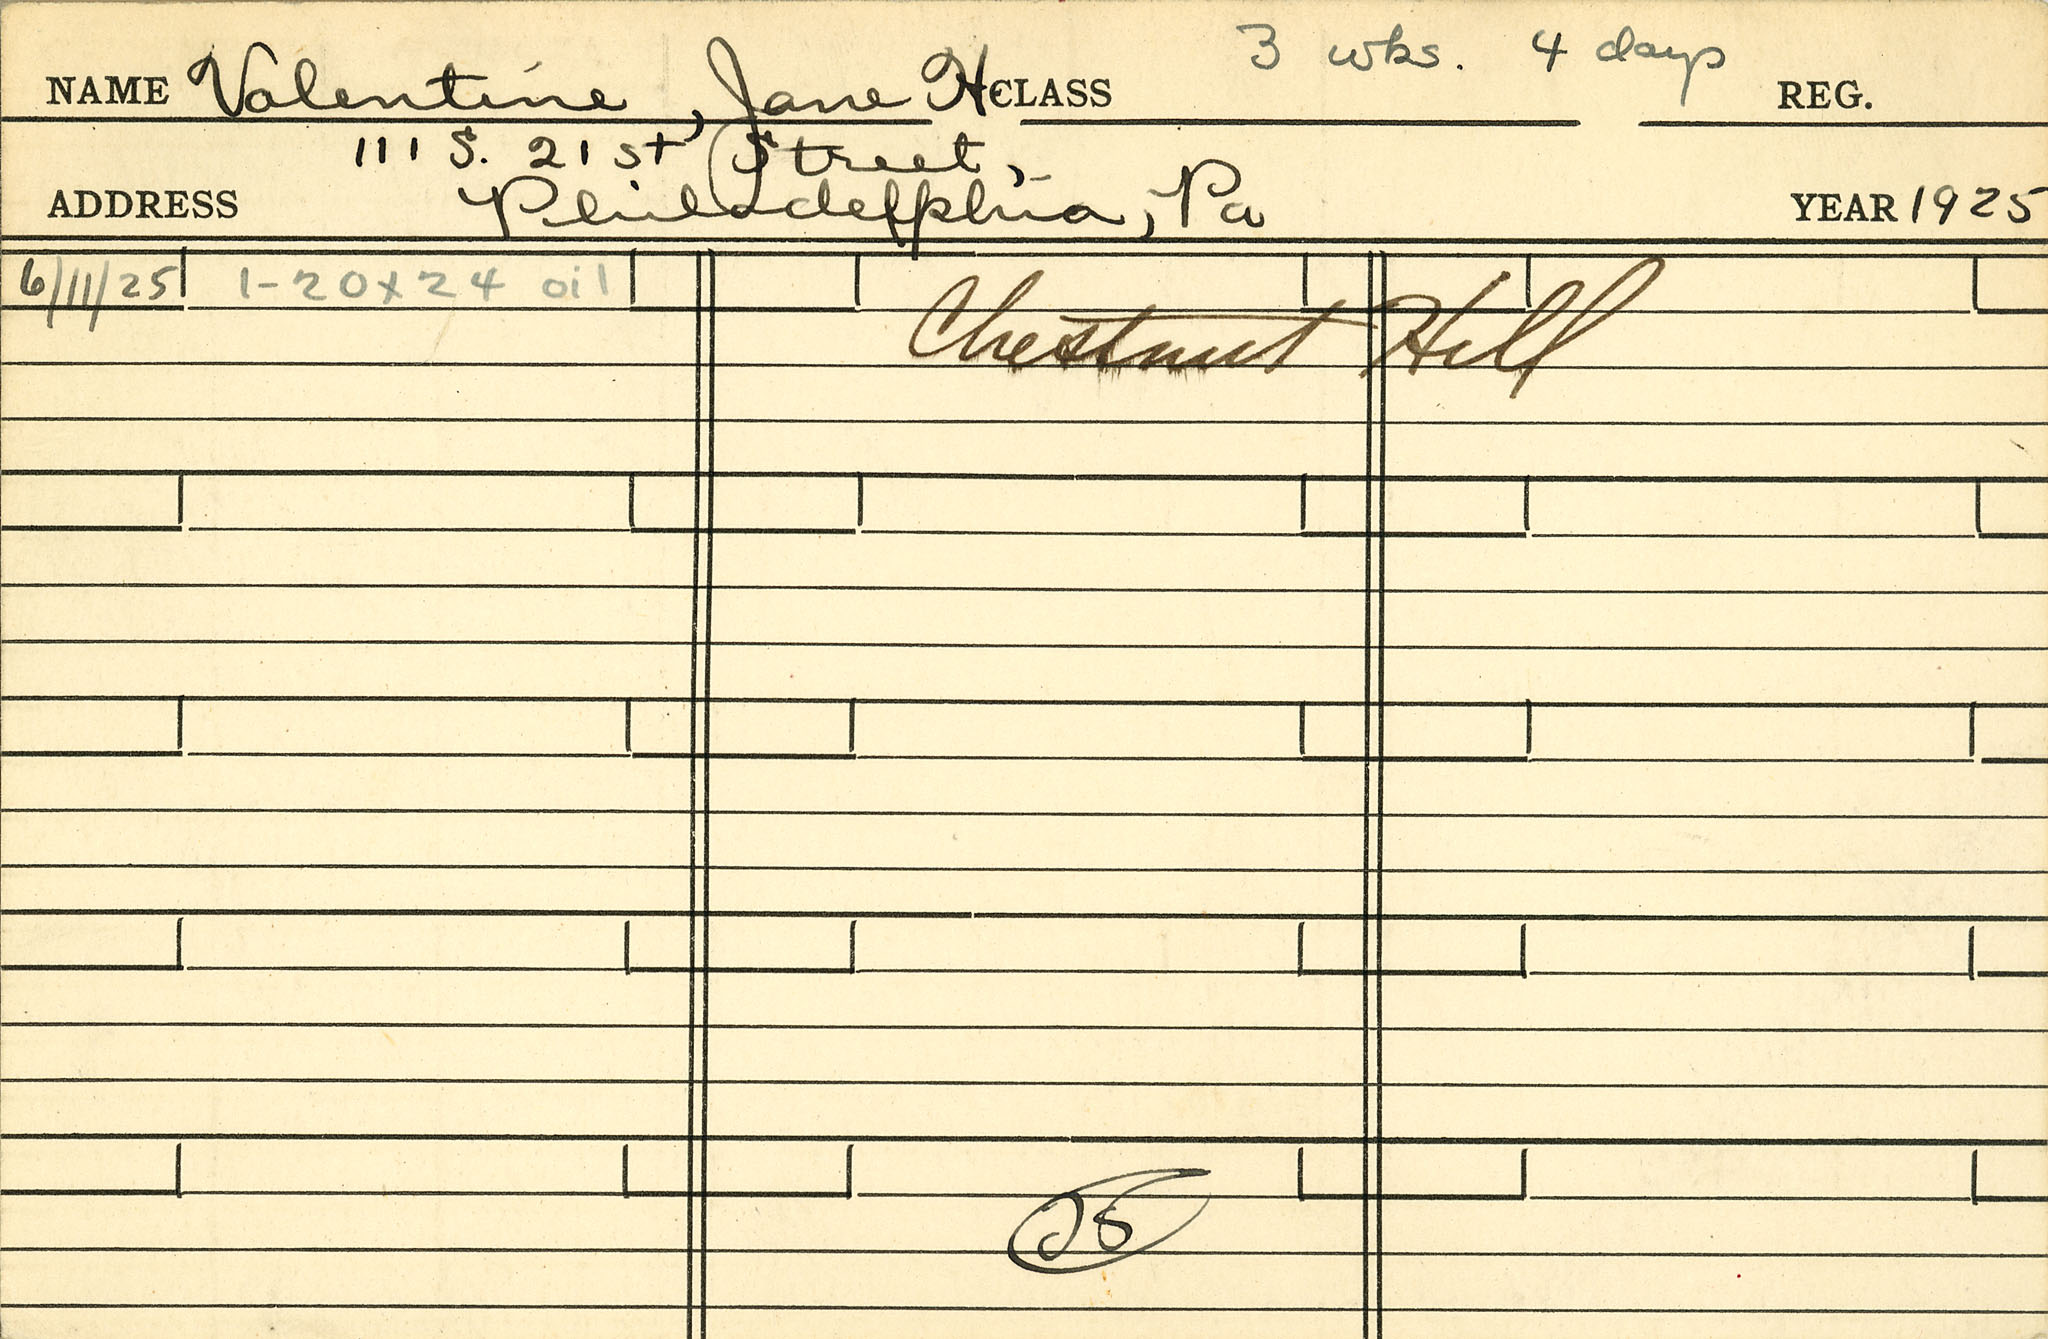 NAME Valentine, Jane H. CLASS 3 wks. 4 days REG.
111 S. 21st Street,
ADDRESS Philadelphia, Pa YEAR 1925
6/11/25 1-20x24 oil
Chestnut Hill
25